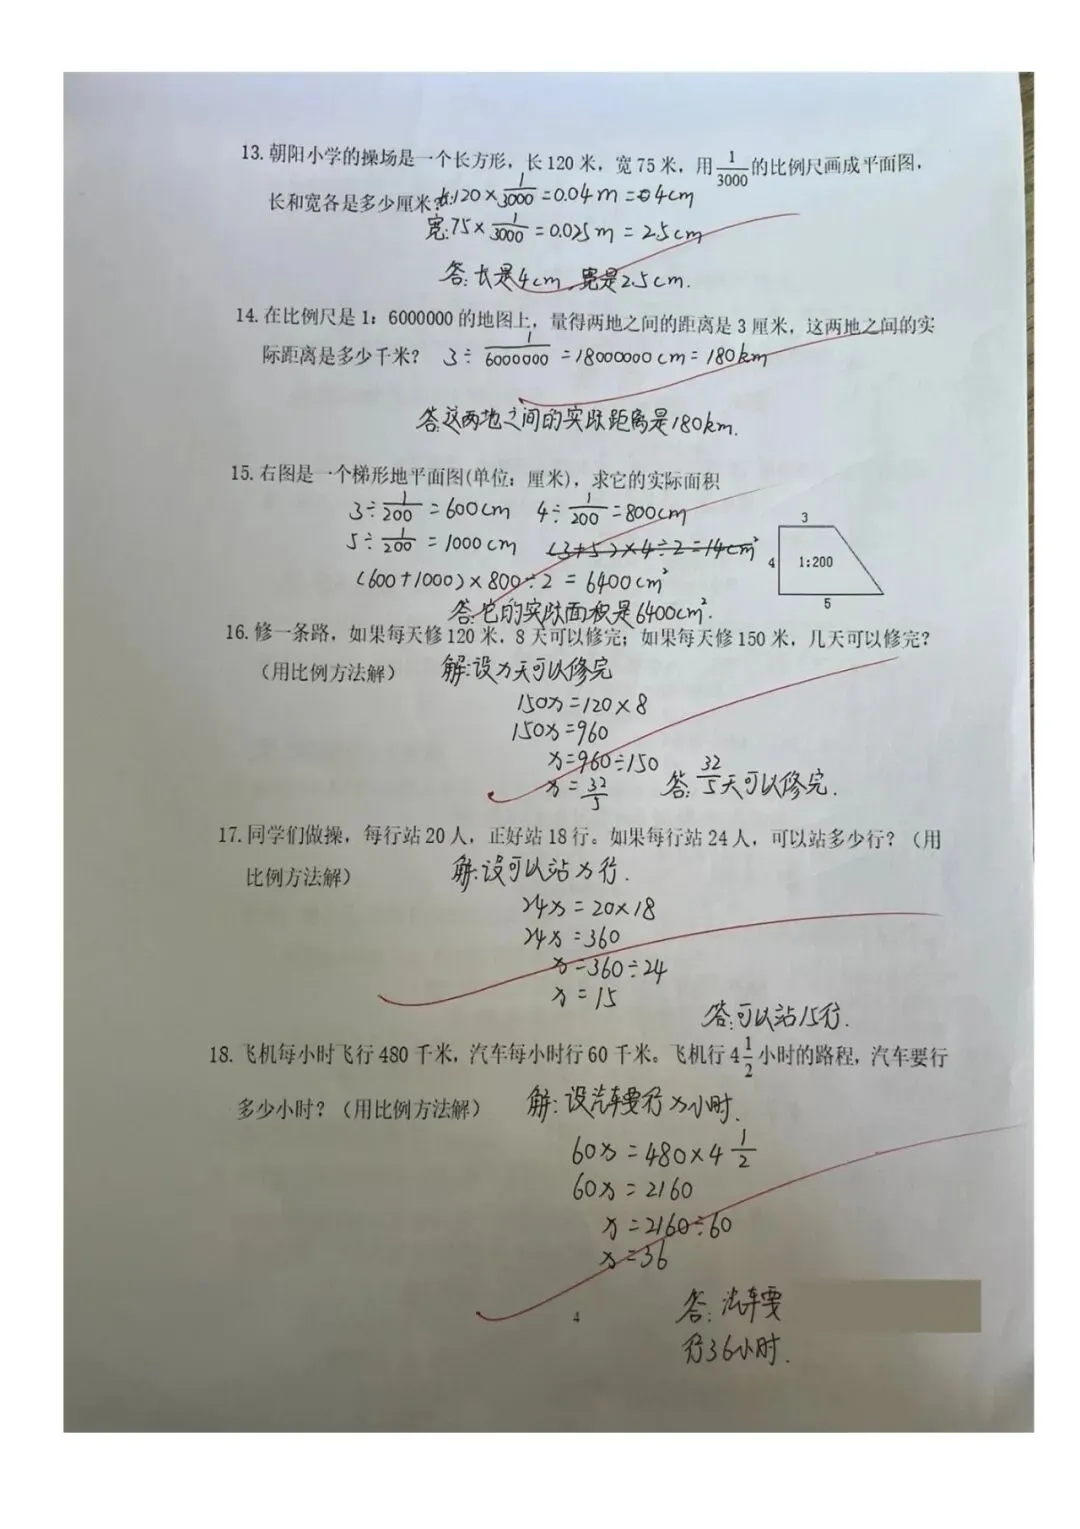 13. 朝阳小学的操场是一个长方形，长 120 米，宽 75 米，用 1/3000 的比例尺画成平面图，
长和宽各是多少厘米？长:120×1/3000=0.04m=4cm
宽:75×1/3000=0.025m=2.5cm
答:长是4cm,宽是2.5cm.
14. 在比例尺是 1：6000000 的地图上，量得两地之间的距离是 3 厘米，这两地之间的实
际距离是多少千米？ 3÷1/6000000=18000000cm=180km
答:这两地之间的实际距离是180km.
15. 右图是一个梯形地平面图(单位：厘米)，求它的实际面积
3÷1/200=600cm 4÷1/200=800cm
5÷1/200=1000cm (3+5)×4÷2=14cm²
(600+1000)×800÷2=6400cm²
答:它的实际面积是6400cm².
3
4
1:200
5
16. 修一条路，如果每天修 120 米，8 天可以修完；如果每天修 150 米，几天可以修完？
（用比例方法解） 解:设x天可以修完
150x=120×8
150x=960
x=960÷150
x=32/5 答:32/5天可以修完.
17. 同学们做操，每行站 20 人，正好站 18 行。如果每行站 24 人，可以站多少行？（用
比例方法解） 解:设可以站x行.
24x=20×18
24x=360
x=360÷24
x=15
答:可以站15行.
18. 飞机每小时飞行 480 千米，汽车每小时行 60 千米。飞机行 4 1/2 小时的路程，汽车要行
多少小时？（用比例方法解） 解:设汽车要行x小时.
60x=480×4 1/2
60x=2160
x=2160÷60
x=36
答:汽车要
行36小时.
4